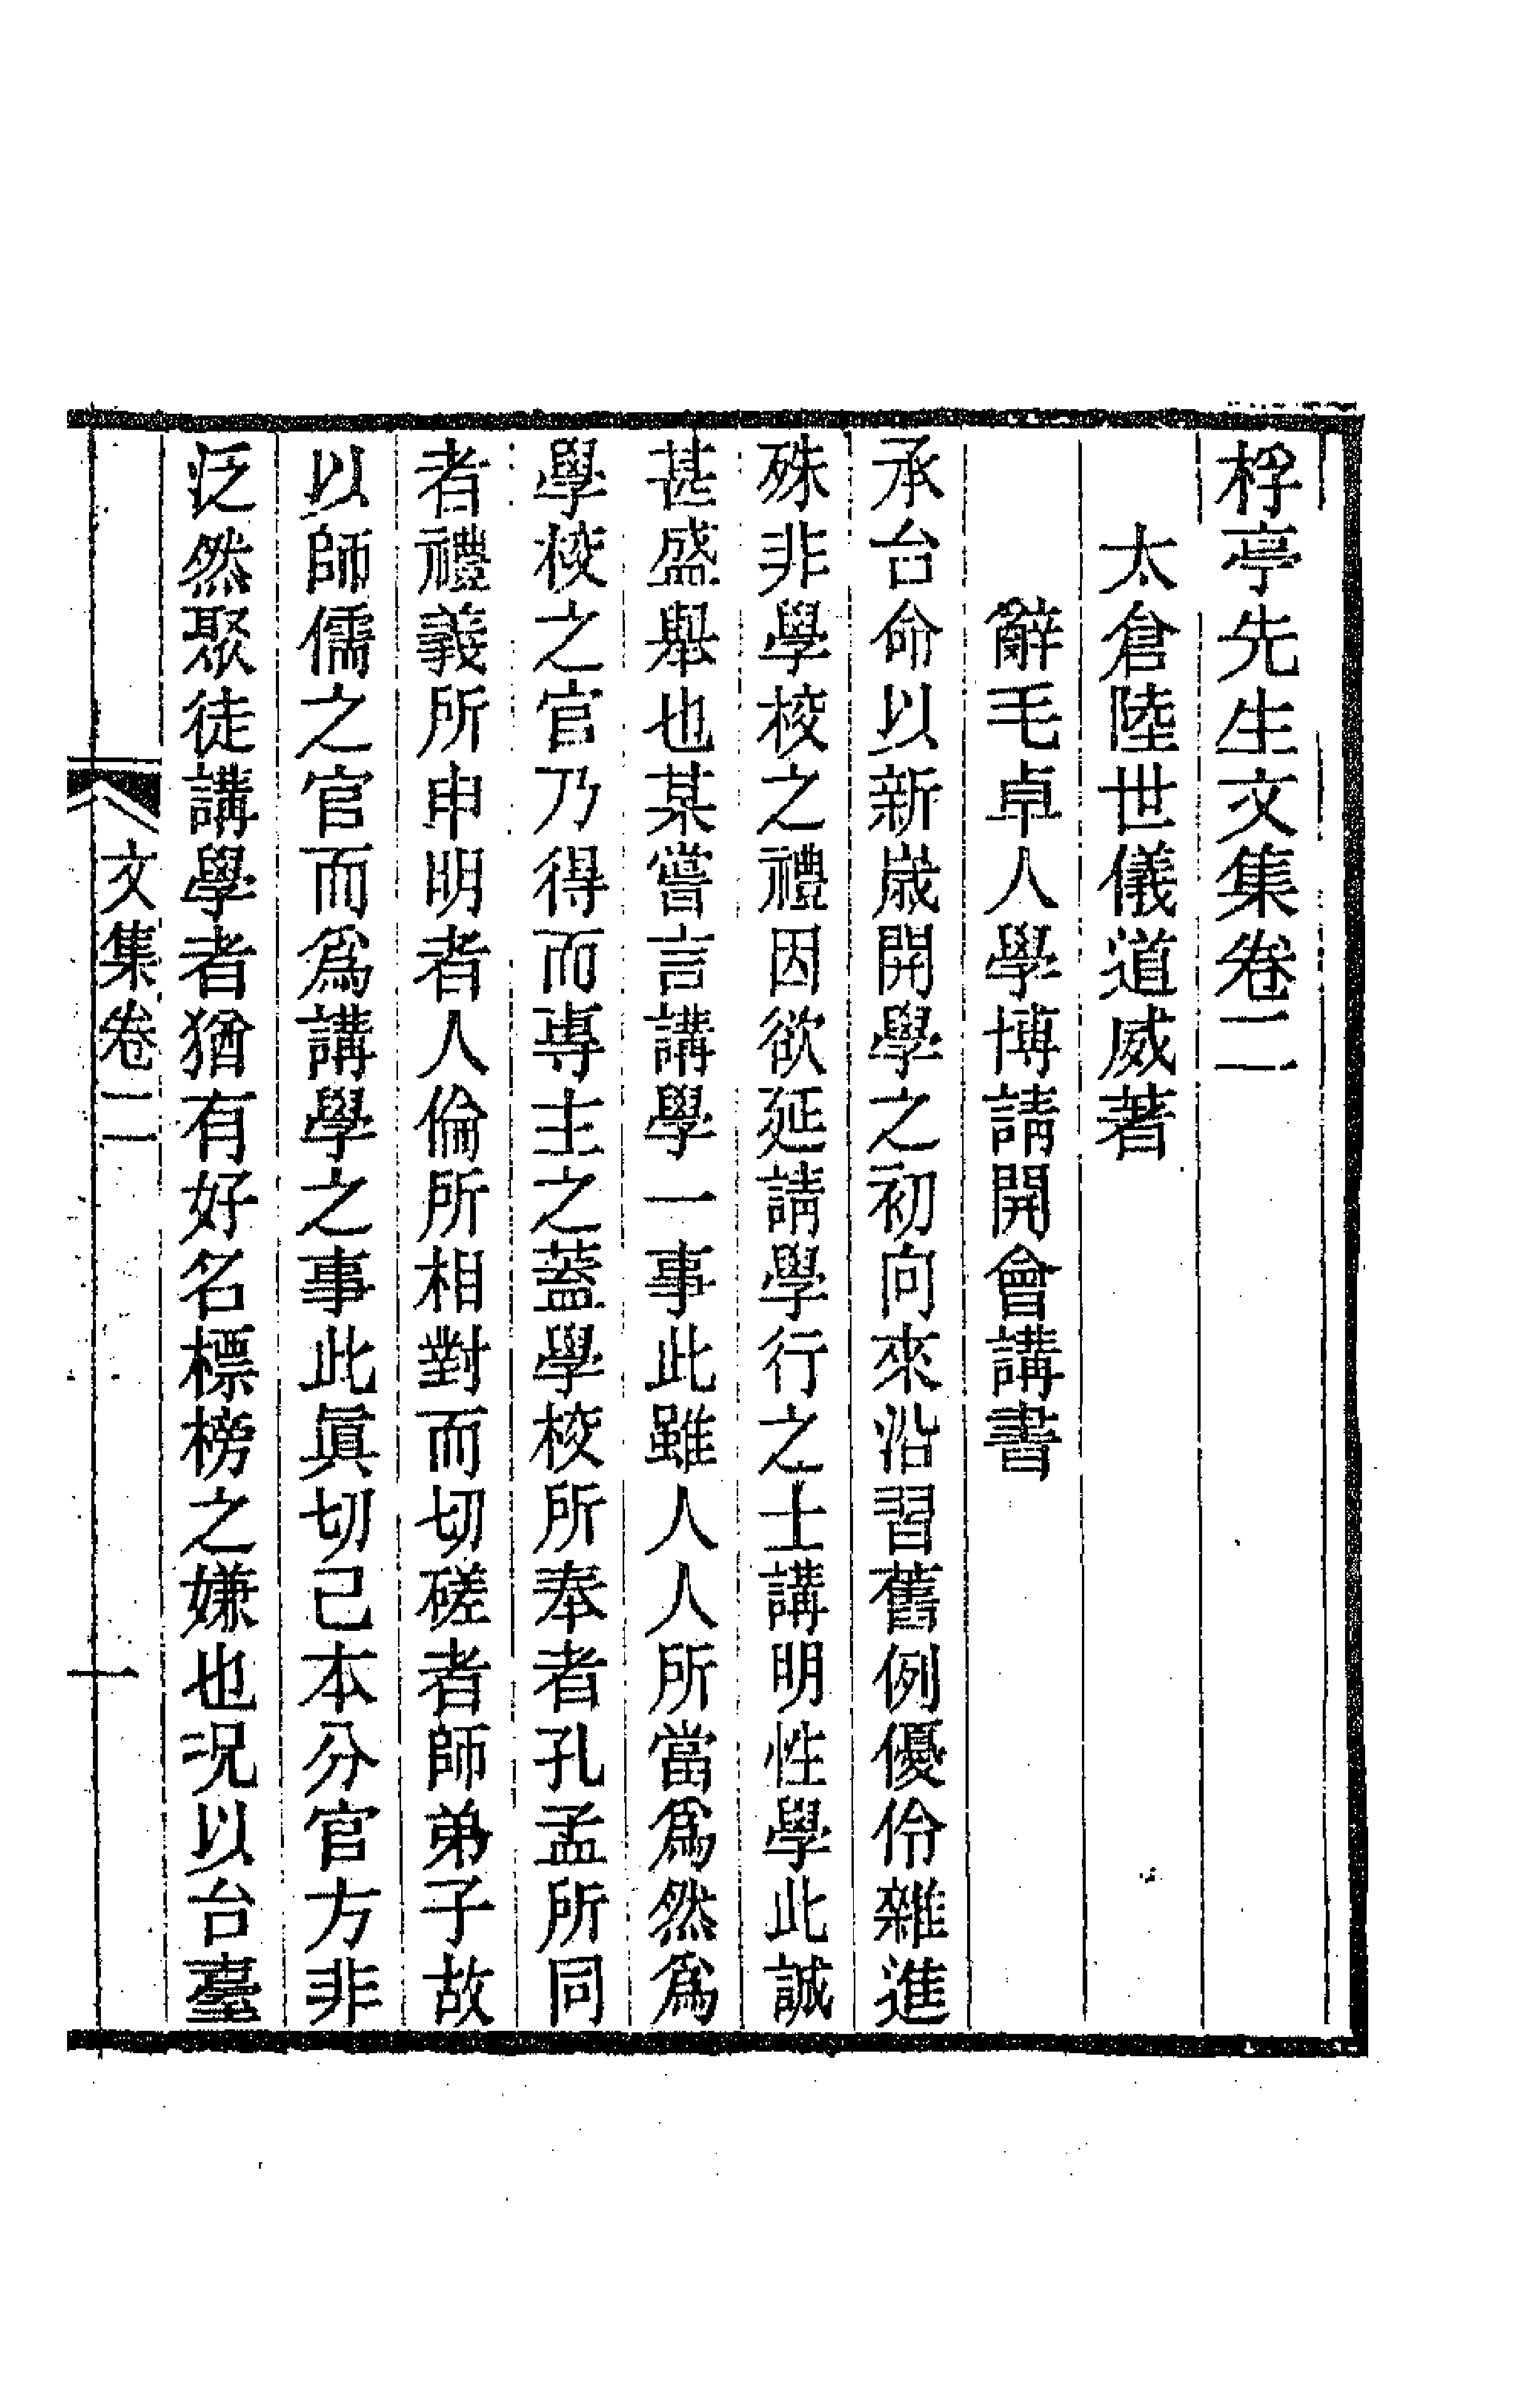 桴亭先生文集卷二
太倉陸世儀道威著
辭毛卓人學博請開會講書
承台命以新歲開學之初向來沿習舊例優伶雜進
殊非學校之禮因欲延請學行之士講明性學此誠
甚盛舉也某嘗言講學一事此雖人人所當爲然爲
學校之官乃得而專主之蓋學校所奉者孔孟所同
者禮義所申明者人倫所相對而切磋者師弟子故
以師儒之官而爲講學之事此眞切己本分官方非
泛然聚徒講學者猶有好名標榜之嫌也況以台臺
文集卷二
一